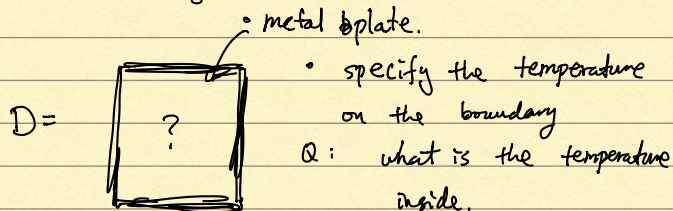 • metal plate.
• specify the temperature
D =
?
on the boundary
Q: what is the temperature
inside.